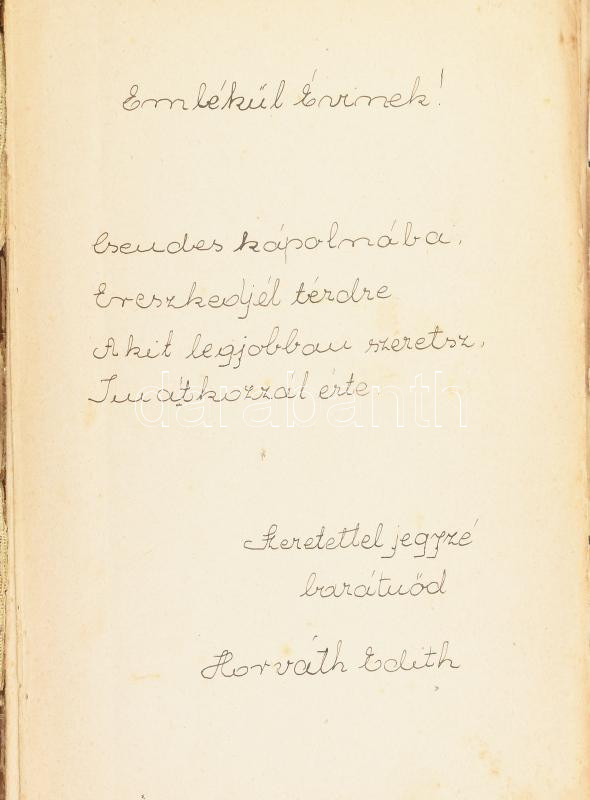 Emlékül Évinek!
Csendes kápolnába,
Ereszkedjél térdre
Akit legjobban szeretsz,
Imátkozzál érte.
darabanth
Szeretettel jegyzé
barátnőd
Horváth Edith